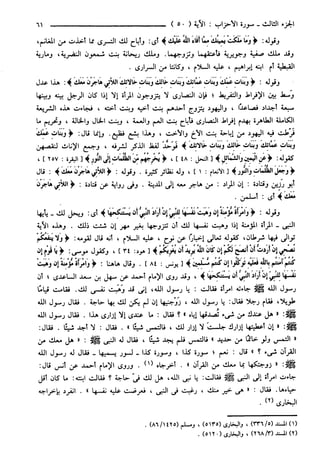 الجزء الثالث - سورة الأحزاب: الآية ( ٥٠ )
٦١
وقوله : ﴿ وَمَا مَلَكَتْ يَمِينُكَ مِمَّا أَفَاءَ اللَّهُ عَلَيْكَ ﴾ أى : وأباح لك التسرى مما أخذت من المغانم،
وقد ملك صفية وجويرية فأعتقهما وتزوجهما. وملك ريحانة بنت شمعون النضرية، ومارية
القبطية أم ابنه إبراهيم ، عليه السلام ، وكانتا من السرارى .
وقوله : ﴿ وَبَنَاتِ عَمِّكَ وَبَنَاتِ عَمَّاتِكَ وَبَنَاتِ خَالِكَ وَبَنَاتِ خَالاتِكَ اللَّاتِي هَاجَرْنَ مَعَكَ ﴾ : هذا عدل
وسط بين الإفراط والتفريط ؛ فإن النصارى لا يتزوجون المرأة إلا إذا كان الرجل بينه وبينها
سبعة أجداد فصاعدًا ، واليهود يتزوج أحدهم بنت أخيه وبنت أخته ، فجاءت هذه الشريعة
الكاملة الطاهرة بهدم إفراط النصارى فأباح بنت العم والعمة، وبنت الخال والخالة ، وتحريم ما
فرّطت فيه اليهود من إباحة بنت الأخ والأخت ، وهذا بشع فظيع . وإنما قال: ﴿ وَبَنَاتِ عَمِّكَ
وَبَنَاتِ عَمَّاتِكَ وَبَنَاتِ خَالِكَ وَبَنَاتِ خَالاتِكَ ﴾ فوحد لفظ الذكر لشرفه ، وجمع الإناث لنقصهن
كقوله: ﴿ عَنِ الْيَمِينِ وَالشَّمَائِلِ ﴾ [ النحل : ٤٨ ] ، ﴿ يُخْرِجُهُم مِّنَ الظُّلُمَاتِ إِلَى النُّورِ ﴾ [ البقرة : ٢٥٧ ] ،
﴿ وَجَعَلَ الظُّلُمَاتِ وَالنُّورَ ﴾ [ الأنعام : ١ ] ، وله نظائر كثيرة. وقوله : ﴿ اللَّاتِي هَاجَرْنَ مَعَكَ ﴾ : قال
أبو رَزين وقتادة : إن المراد : من هاجر معه إلى المدينة . وفى رواية عن قتادة : ﴿ اللَّاتِي هَاجَرْنَ
مَعَكَ ﴾ أى : أسلمن .
وقوله : ﴿ وَامْرَأَةً مُّؤْمِنَةً إِن وَهَبَتْ نَفْسَهَا لِلنَّبِيِّ إِنْ أَرَادَ النَّبِيُّ أَن يَسْتَنكِحَهَا ﴾ أى : ويحل لك - يأيها
النبى - المرأة المؤمنة إذا وهبت نفسها لك أن تتزوجها بغير مهر إن شئت ذلك . وهذه الآية
توالى فيها شرطان، كقوله تعالى إخبارًا عن نوح ، عليه السلام ، أنه قال لقومه: ﴿ وَلا يَنفَعُكُمْ
نُصْحِي إِنْ أَرَدتُّ أَنْ أَنصَحَ لَكُمْ إِن كَانَ اللَّهُ يُرِيدُ أَن يُغْوِيَكُمْ ﴾ [ هود : ٣٤ ] ، وكقول موسى: ﴿ يَا قَوْمِ إِن
كُنتُمْ آمَنتُم بِاللَّهِ فَعَلَيْهِ تَوَكَّلُوا إِن كُنتُم مُّسْلِمِينَ ﴾ [ يونس : ٨٤ ] . وقال هاهنا : ﴿ وَامْرَأَةً مُّؤْمِنَةً إِن وَهَبَتْ
نَفْسَهَا لِلنَّبِيِّ إِنْ أَرَادَ النَّبِيُّ أَن يَسْتَنكِحَهَا ﴾ ، وقد روى الإمام أحمد عن سهل بن سعد الساعدى ؛ أن
رسول الله ﷺ جاءته امرأة فقالت : يا رسول الله، إنى قد وَهَبت نفسى لك. فقامت قيامًا
طويلا، فقام رجل فقال: يا رسول الله ، زَوّجنيها إن لم يكن لك بها حاجة . فقال رسول الله
ﷺ : « هل عندك من شىء تُصدقها إياه » ؟ فقال : ما عندى إلا إزارى هذا . فقال رسول الله
ﷺ : « إن أعطيتها إزارك جلستَ لا إزار لك ، فالتمس شيئًا » . فقال : لا أجد شيئًا . فقال :
« التمس ولو خاتمًا من حديد » فالتمس فلم يجد شيئًا ، فقال له النبى ﷺ : « هل معك من
القرآن شىء ؟ » قال : نعم ؛ سورة كذا ، وسورة كذا - لسور يسميها - فقال له رسول الله
ﷺ : « زوجتكها بما معك من القرآن » . أخرجاه (١) . وروى الإمام أحمد عن أنس قال:
جاءت امرأة إلى النبى ﷺ فقالت: يا نبى الله، هل لك فىّ حاجة ؟ فقالت ابنته: ما كان أقل
حياءها. فقال : « هى خير منك ، رغبت فى النبى ، فعرضت عليه نفسها » . انفرد بإخراجه
البخارى (٢) .
(١) المسند (٥/ ٣٣٦) ، والبخارى (٥١٣٥) ، ومسلم (١٤٢٥/ ٨٦) .
(٢) المسند (٣/ ٢٦٨) ، والبخارى (٥١٢٠) .